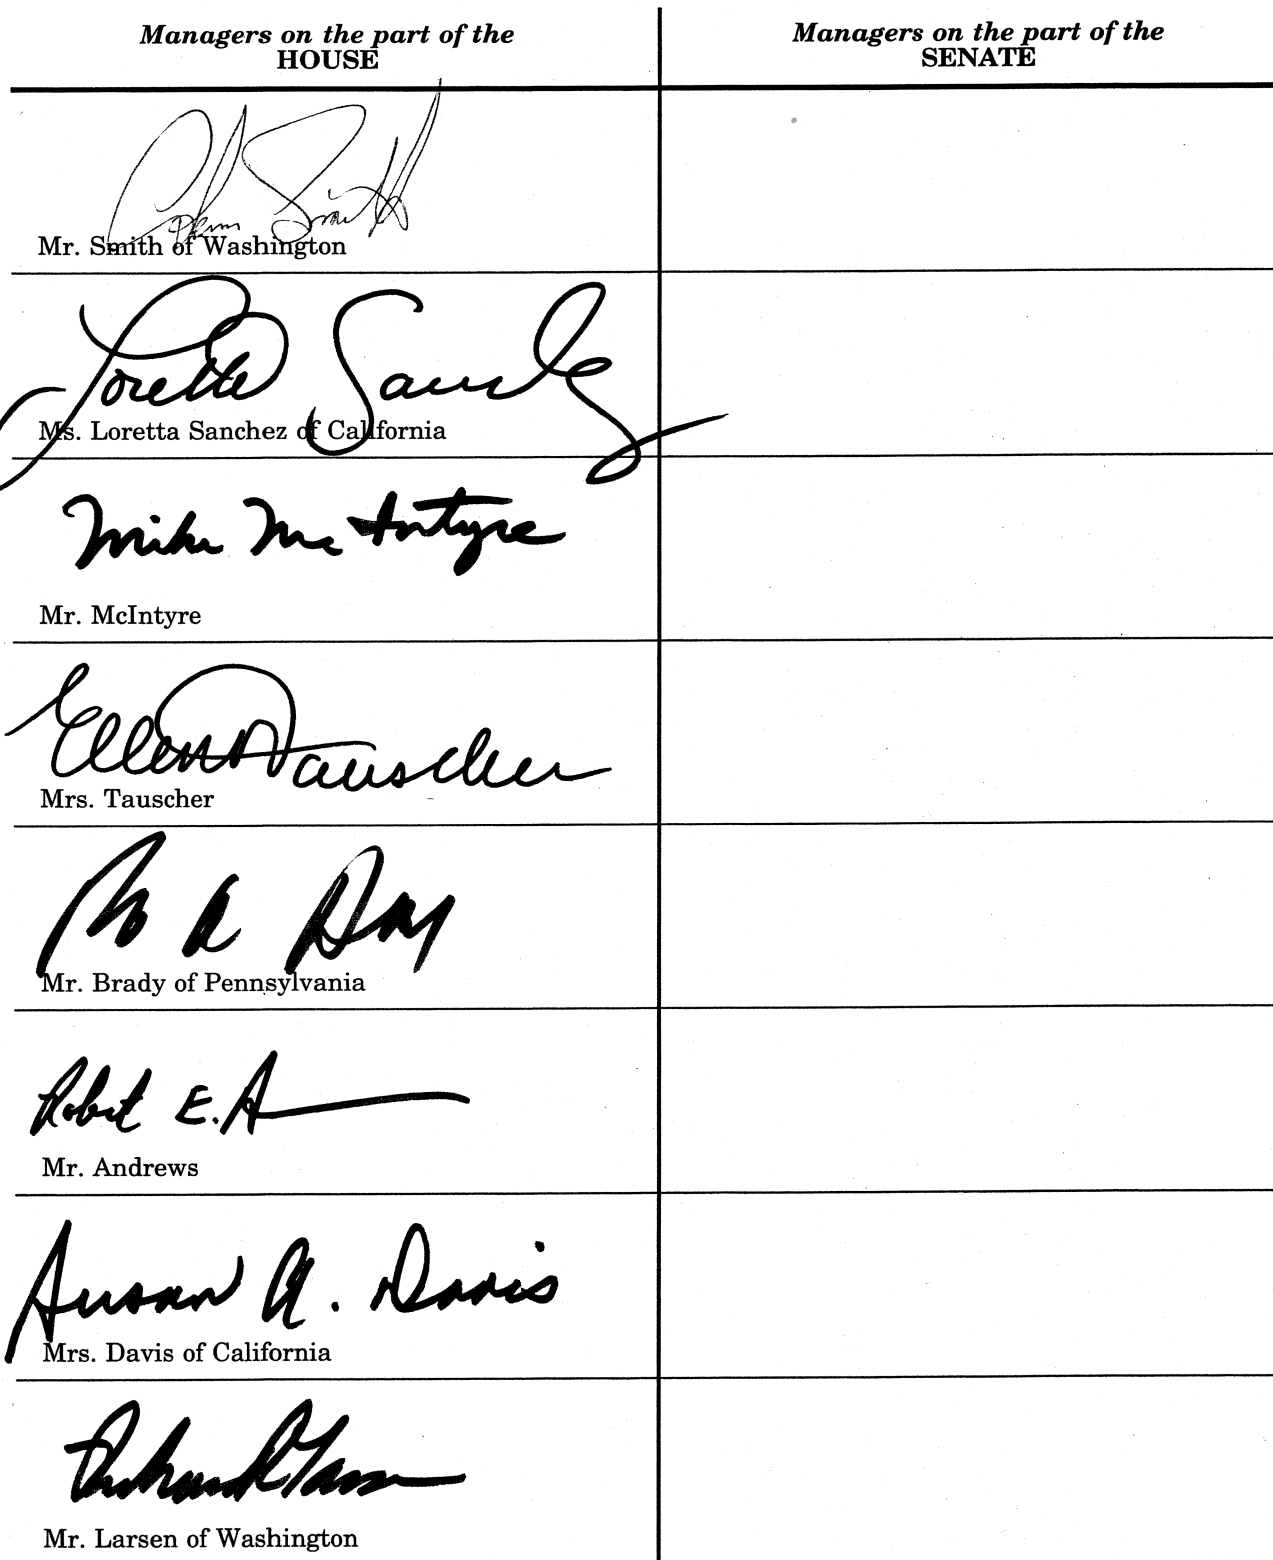 Managers on the part of the
HOUSE
Managers on the part of the
SENATE
Smith
Mr. Smith of Washington
Loretta Sanchez
Ms. Loretta Sanchez of California
Mike McIntyre
Mr. McIntyre
Ellen Tauscher
Mrs. Tauscher
Mr. Brady of Pennsylvania
Robert E. A
Mr. Andrews
Susan A. Davis
Mrs. Davis of California
Mr. Larsen of Washington